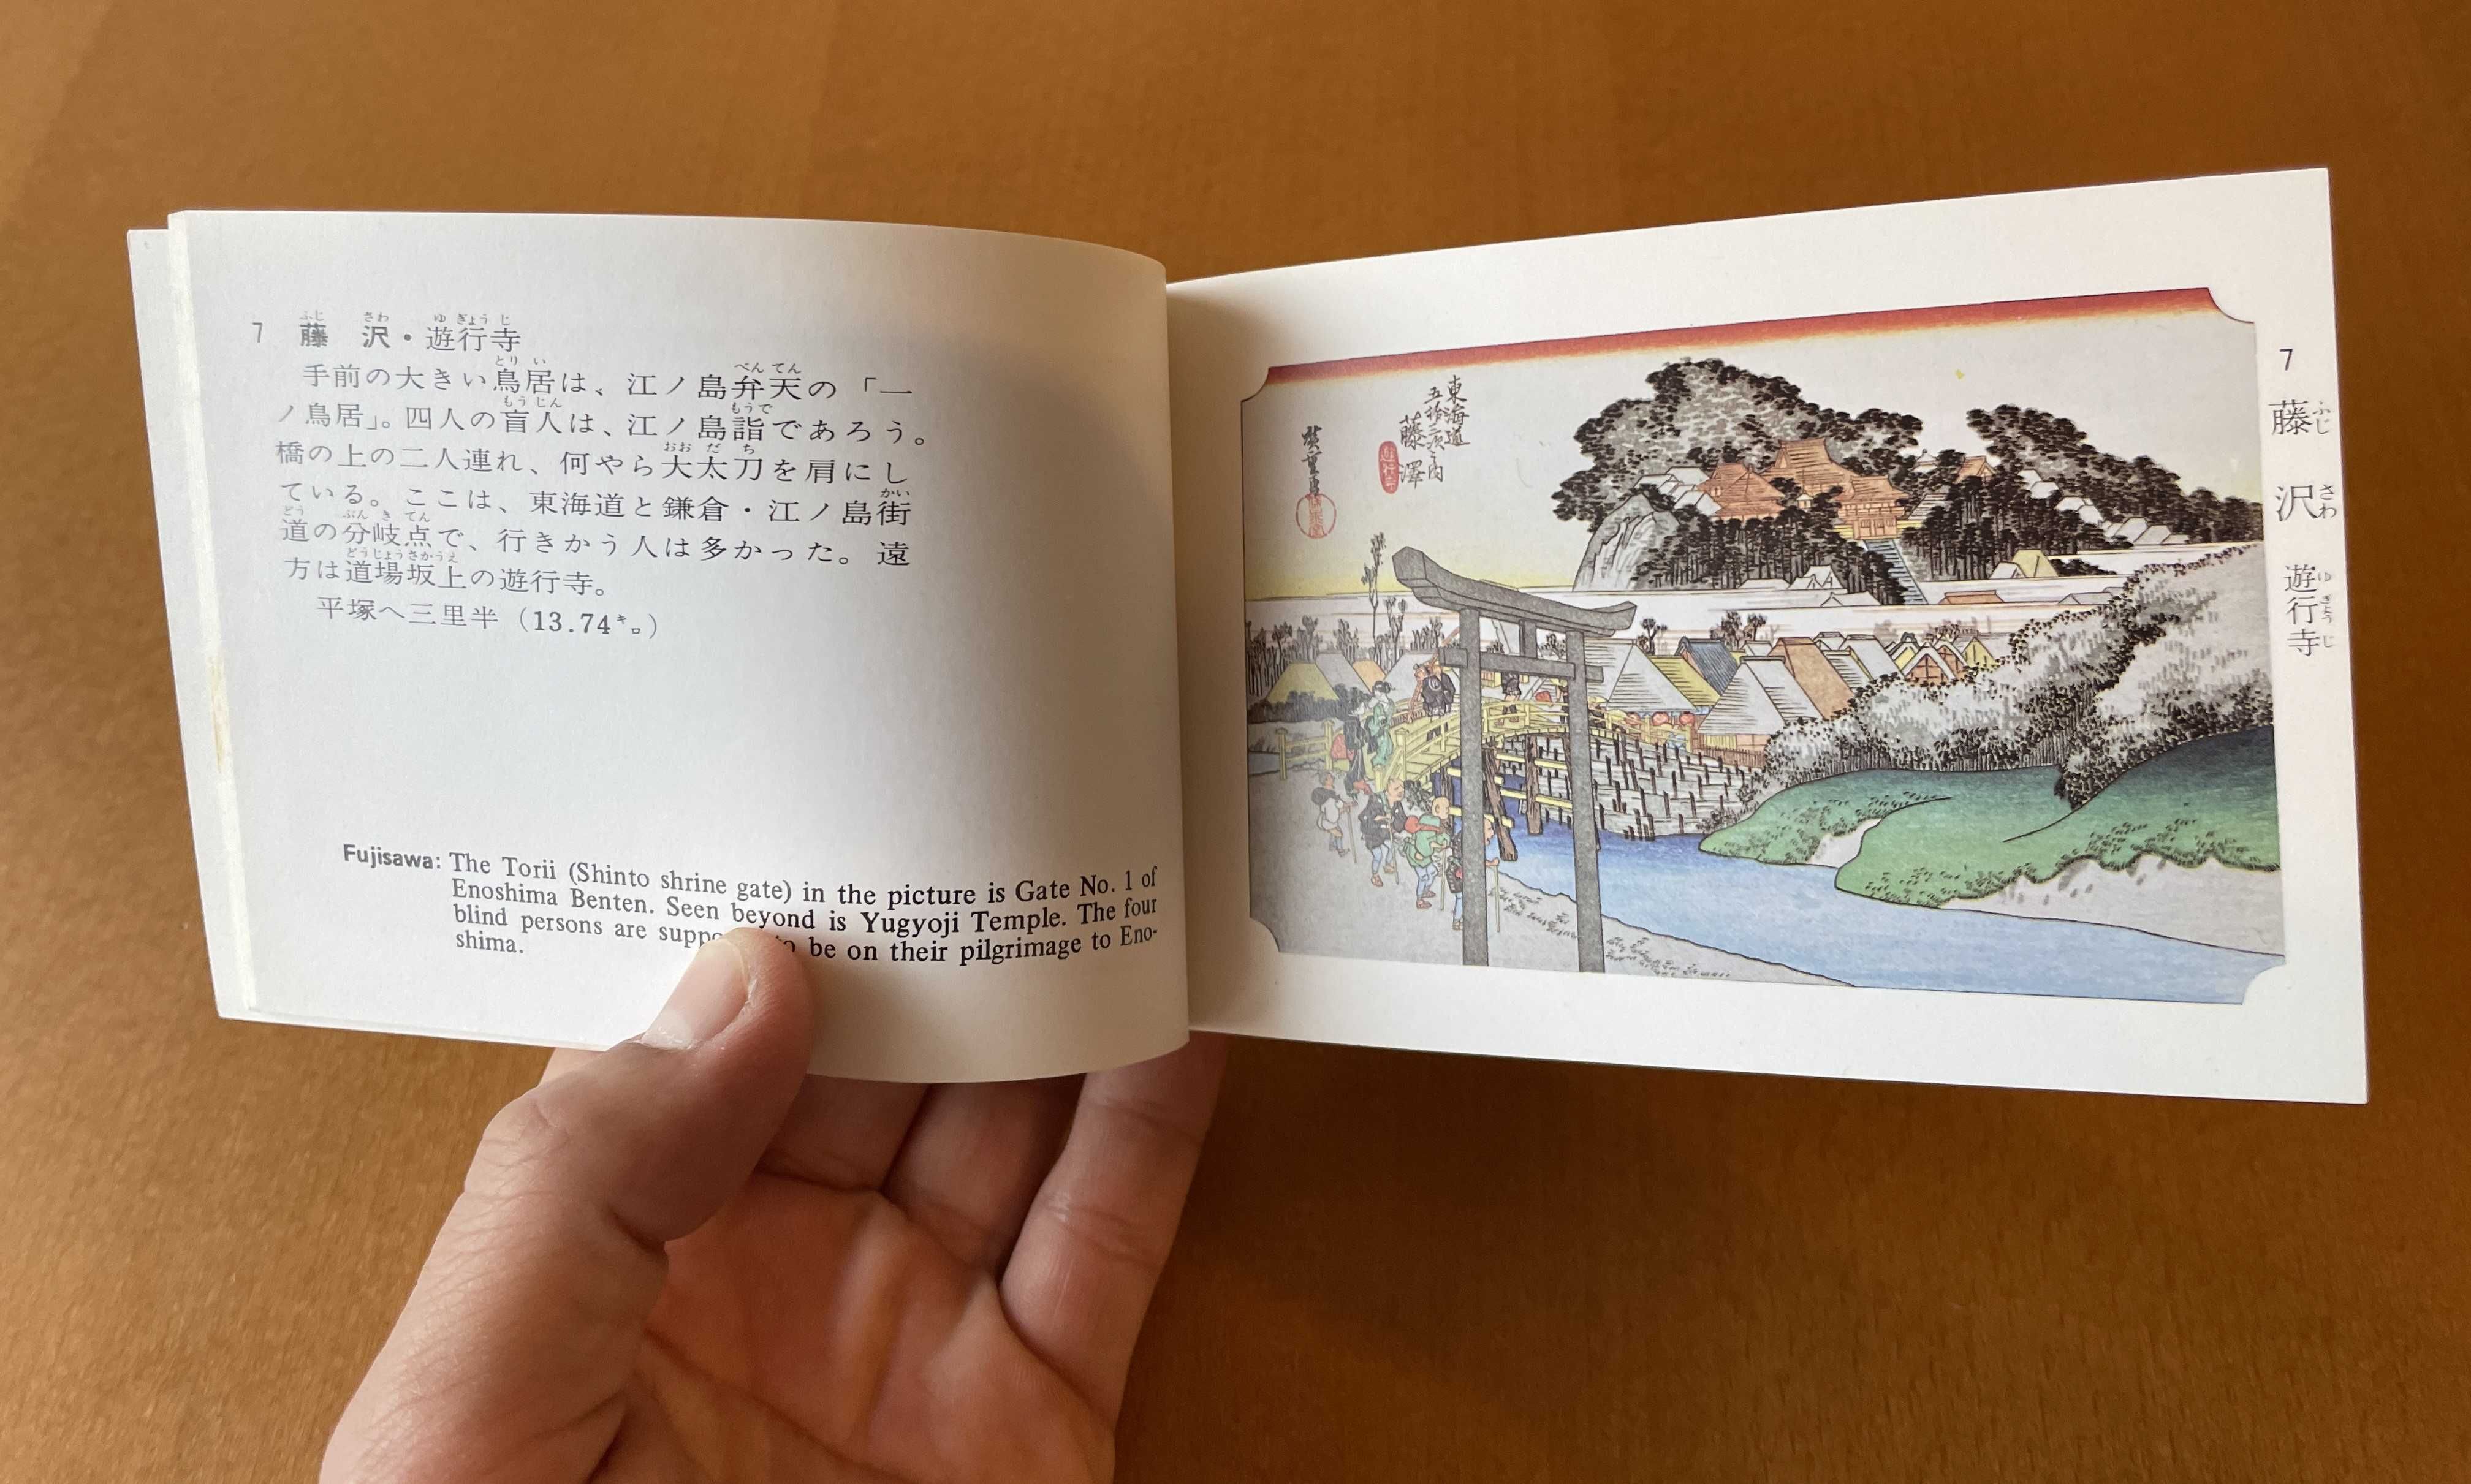 7 藤沢・遊行寺
ふじ さわ ゆぎょうじ
手前の大きい鳥居は、江ノ島弁天の「一
とりい べんてん
ノ鳥居」。四人の盲人は、江ノ島詣であろう。
もうじん もうで
橋の上の二人連れ、何やら大太刀を肩にし
おおだち
ている。ここは、東海道と鎌倉・江ノ島街
かい
道の分岐点で、行きかう人は多かった。遠
どう ぶんきてん
方は道場坂上の遊行寺。
どうじょうさかうえ
平塚へ三里半(13.74キロ)
Fujisawa: The Torii (Shinto shrine gate) in the picture is Gate No. 1 of
Enoshima Benten. Seen beyond is Yugyoji Temple. The four
blind persons are be on their pilgrimage to Eno-
shima.
東海道
五拾三次之内
藤澤
遊行寺
廣重画
7 藤沢 遊行寺
ふじ さわ ゆぎょうじ